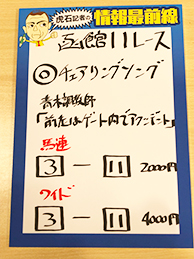 虎石記者の
情報最前線
函館11レース
◎チェアリングソング
青木調教師
「前走はゲート内でアクシデント」
馬連
3 ー 11 2000円
ワイド
3 ー 11 4000円